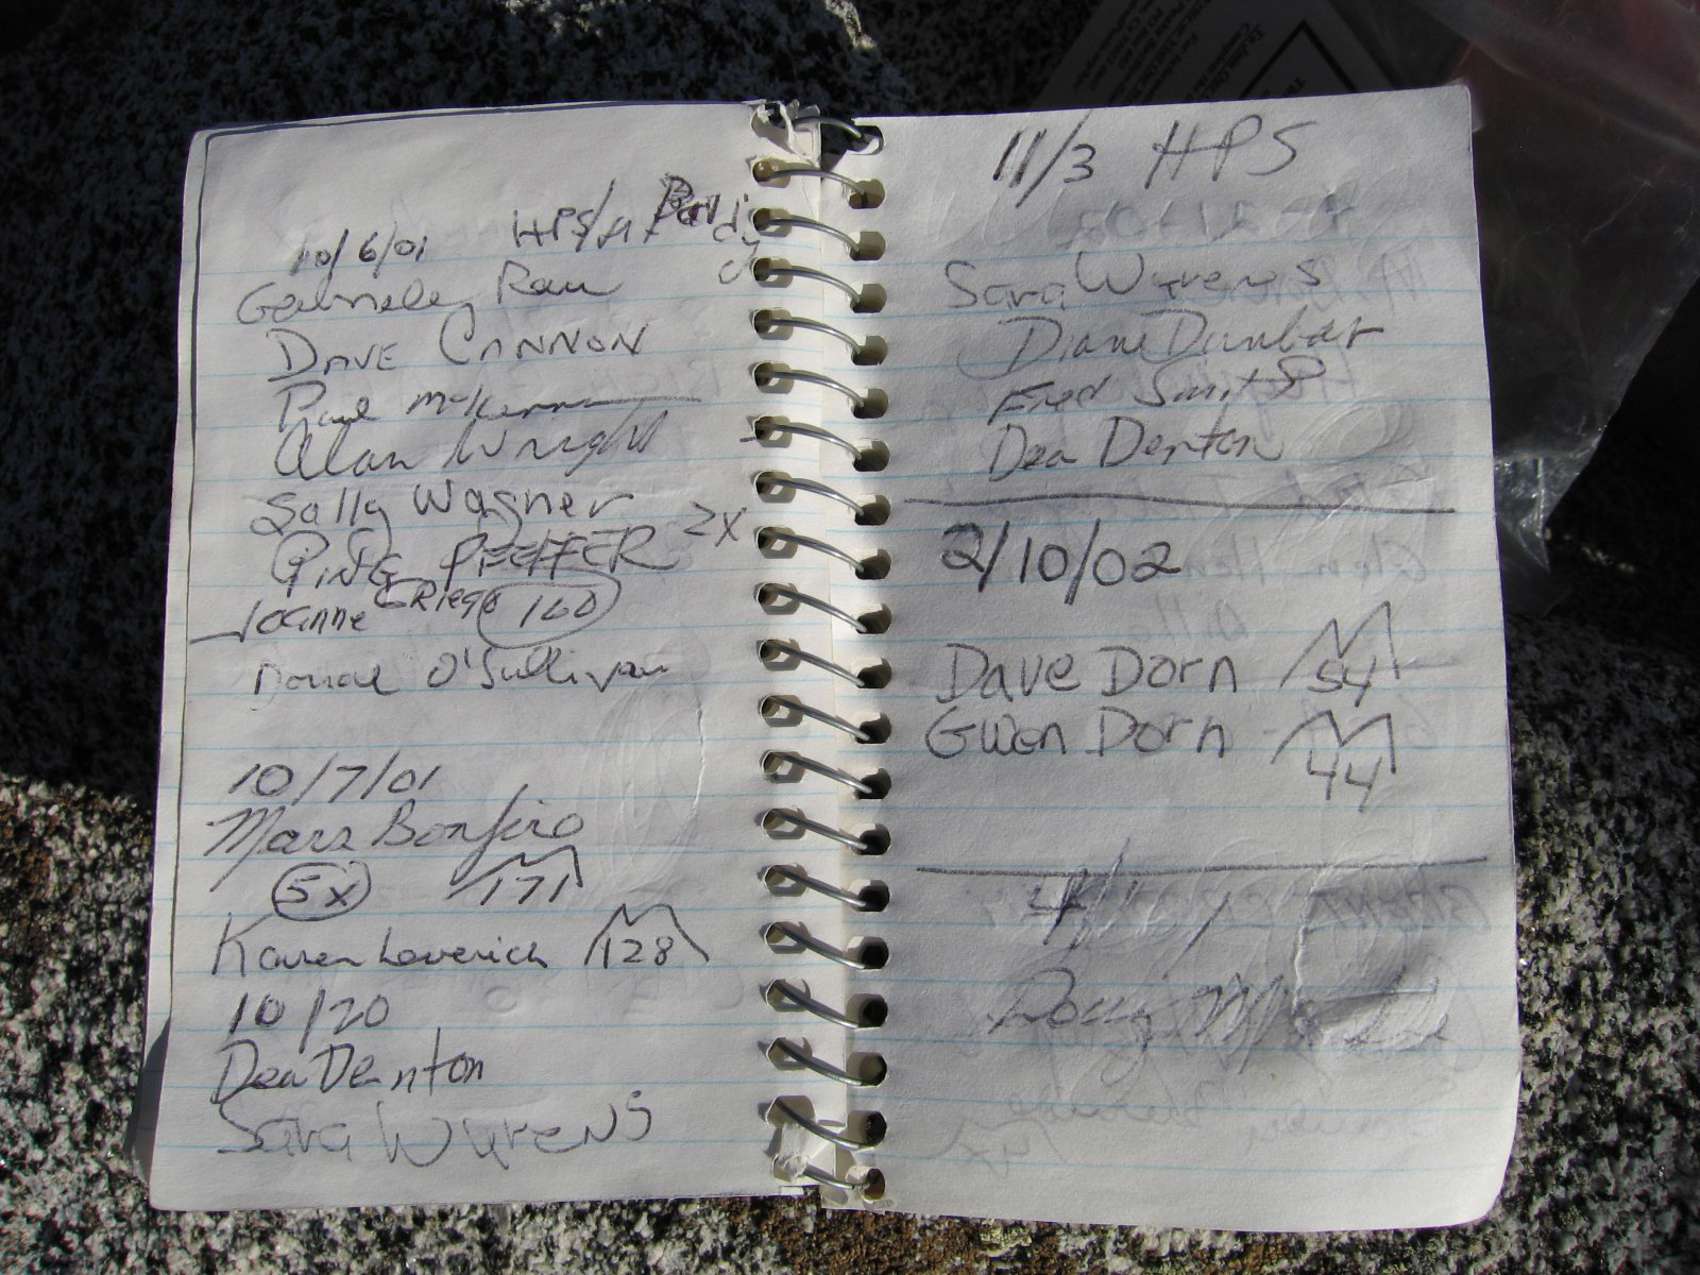 10/6/01 HPS/
Rau
DAVE CANNON
Paul McKenna
Alan Wright
Sally Wagner
PING PFEFFER 2X
Joanne Griego 160
Donal O'Sullivan
10/7/01
Mars Bonfire
5x 171
Karen Leverich 128
10/20
Dea Denton
Sara Wyrens
11/3 HPS
Sara Wyrens
Diane Dunbar
Fred Smith
Dea Denton
2/10/02
Dave Dorn 54
Gwen Dorn - 44